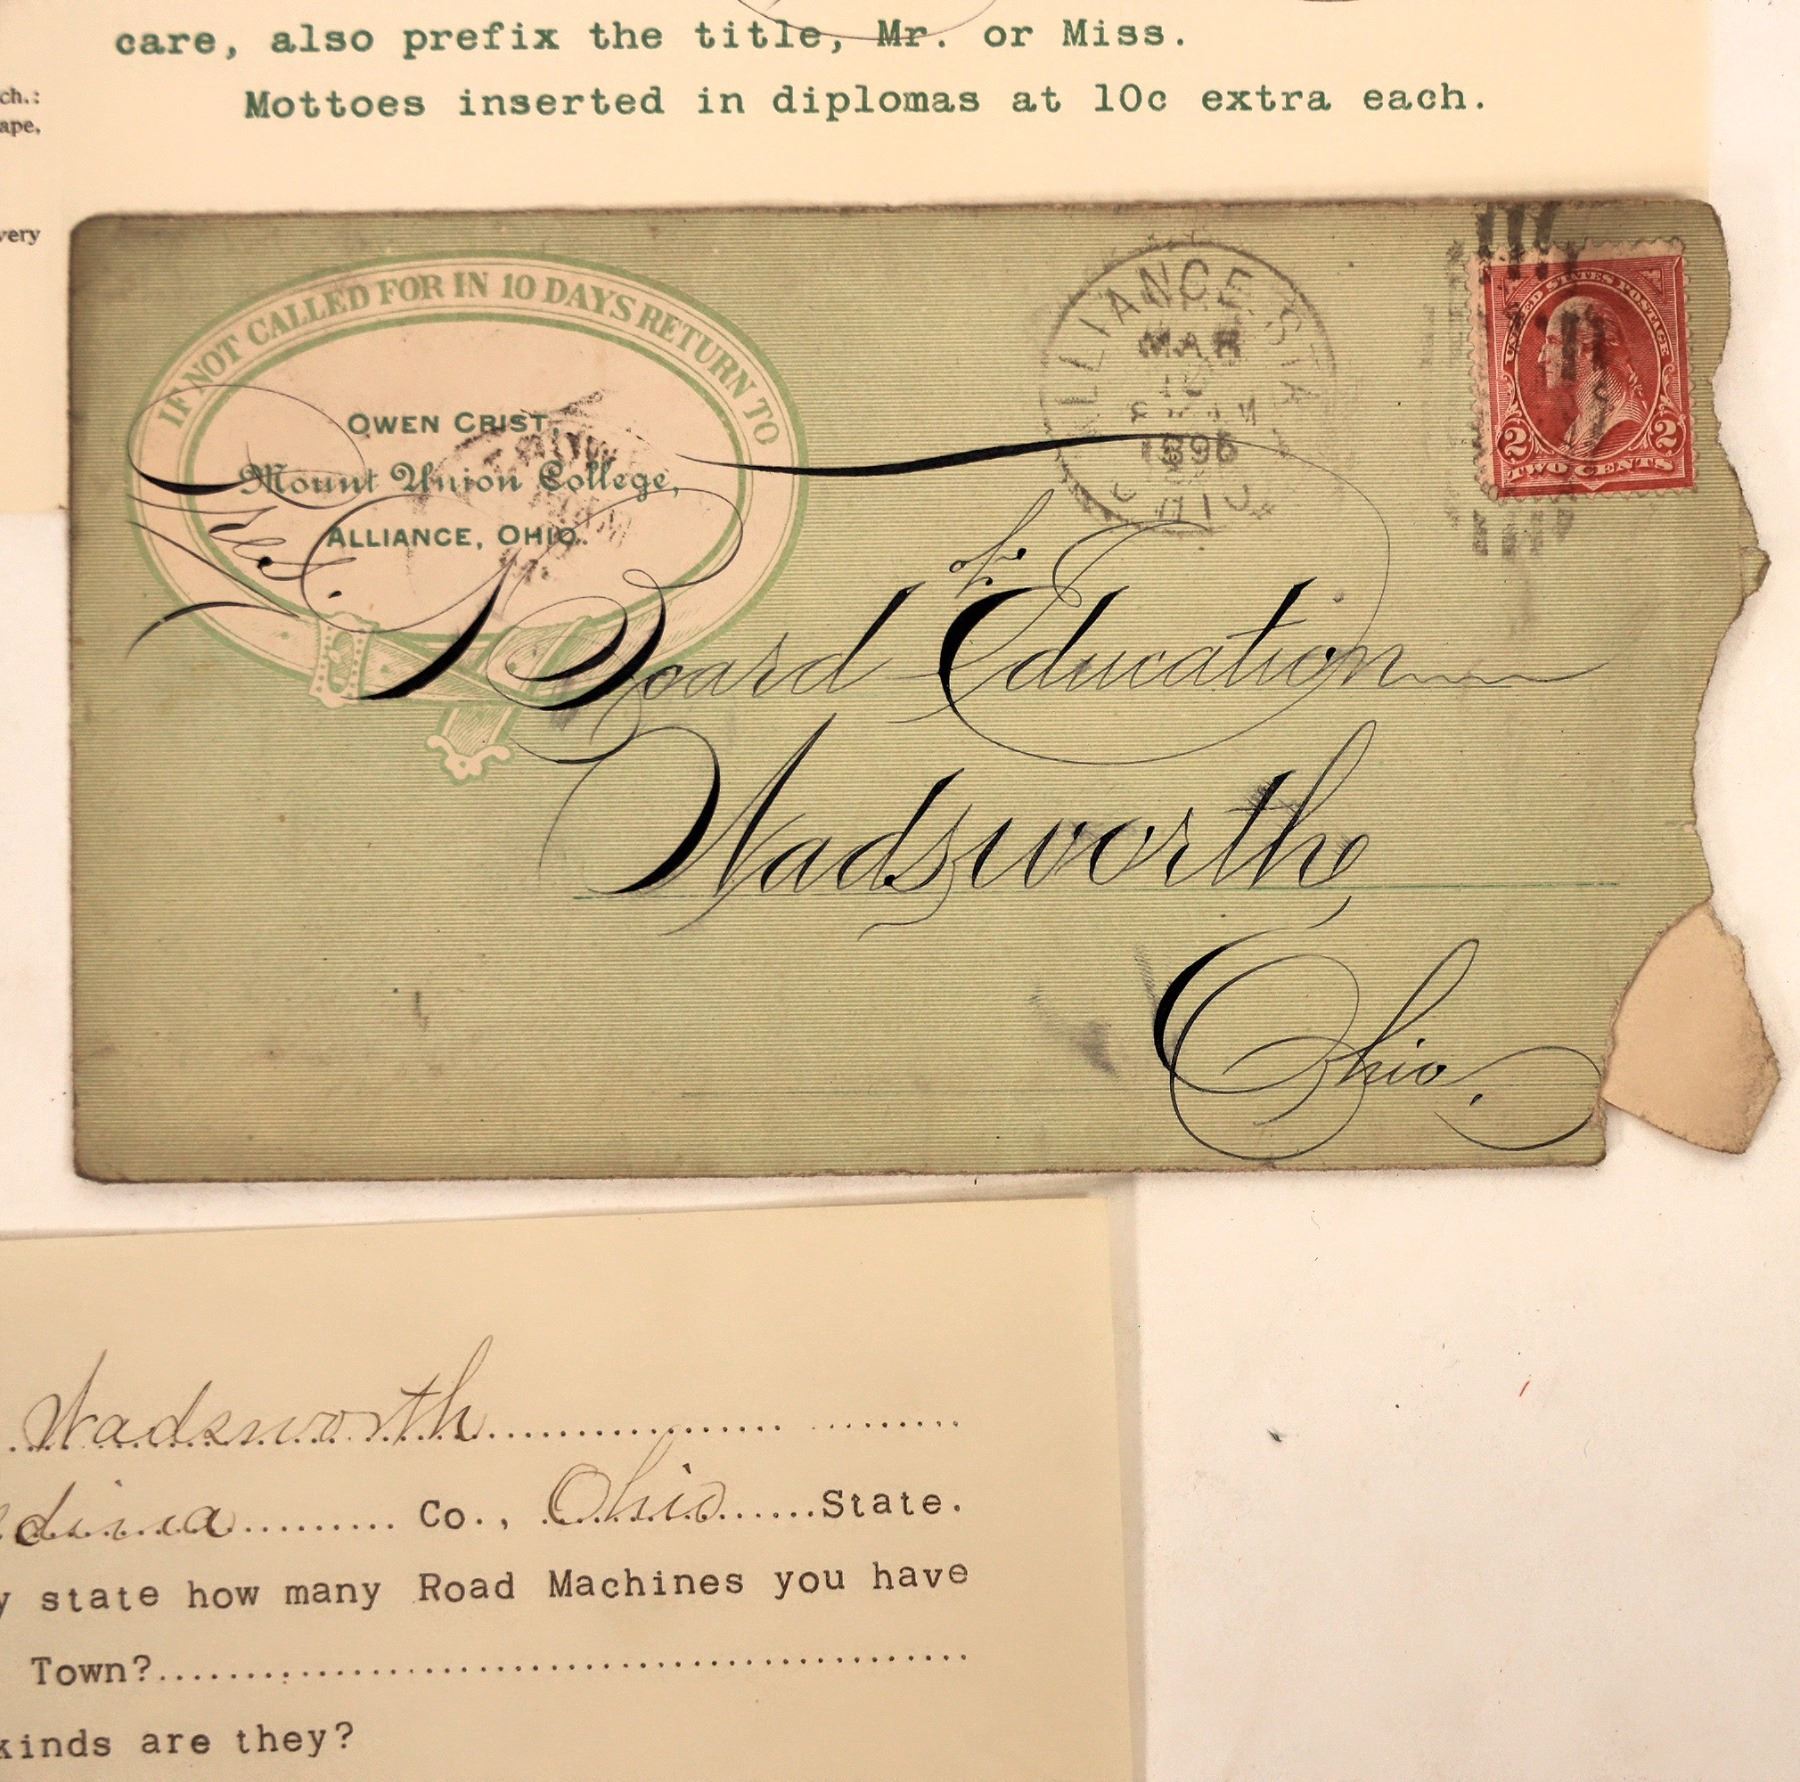 care, also prefix the title, Mr. or Miss.
Mottoes inserted in diplomas at 10c extra each.
ch.:
ape,
very
IF NOT CALLED FOR IN 10 DAYS RETURN TO
OWEN CRIST,
Mount Union College,
ALLIANCE, OHIO.
ALLIANCE STA
MAR
1896
OHIO
UNITED STATES POSTAGE
2 2
TWO CENTS
Pres.
Board of Education
Wadsworth
Ohio.
Wadsworth
edina Co., Ohio State.
y state how many Road Machines you have
Town?
kinds are they?